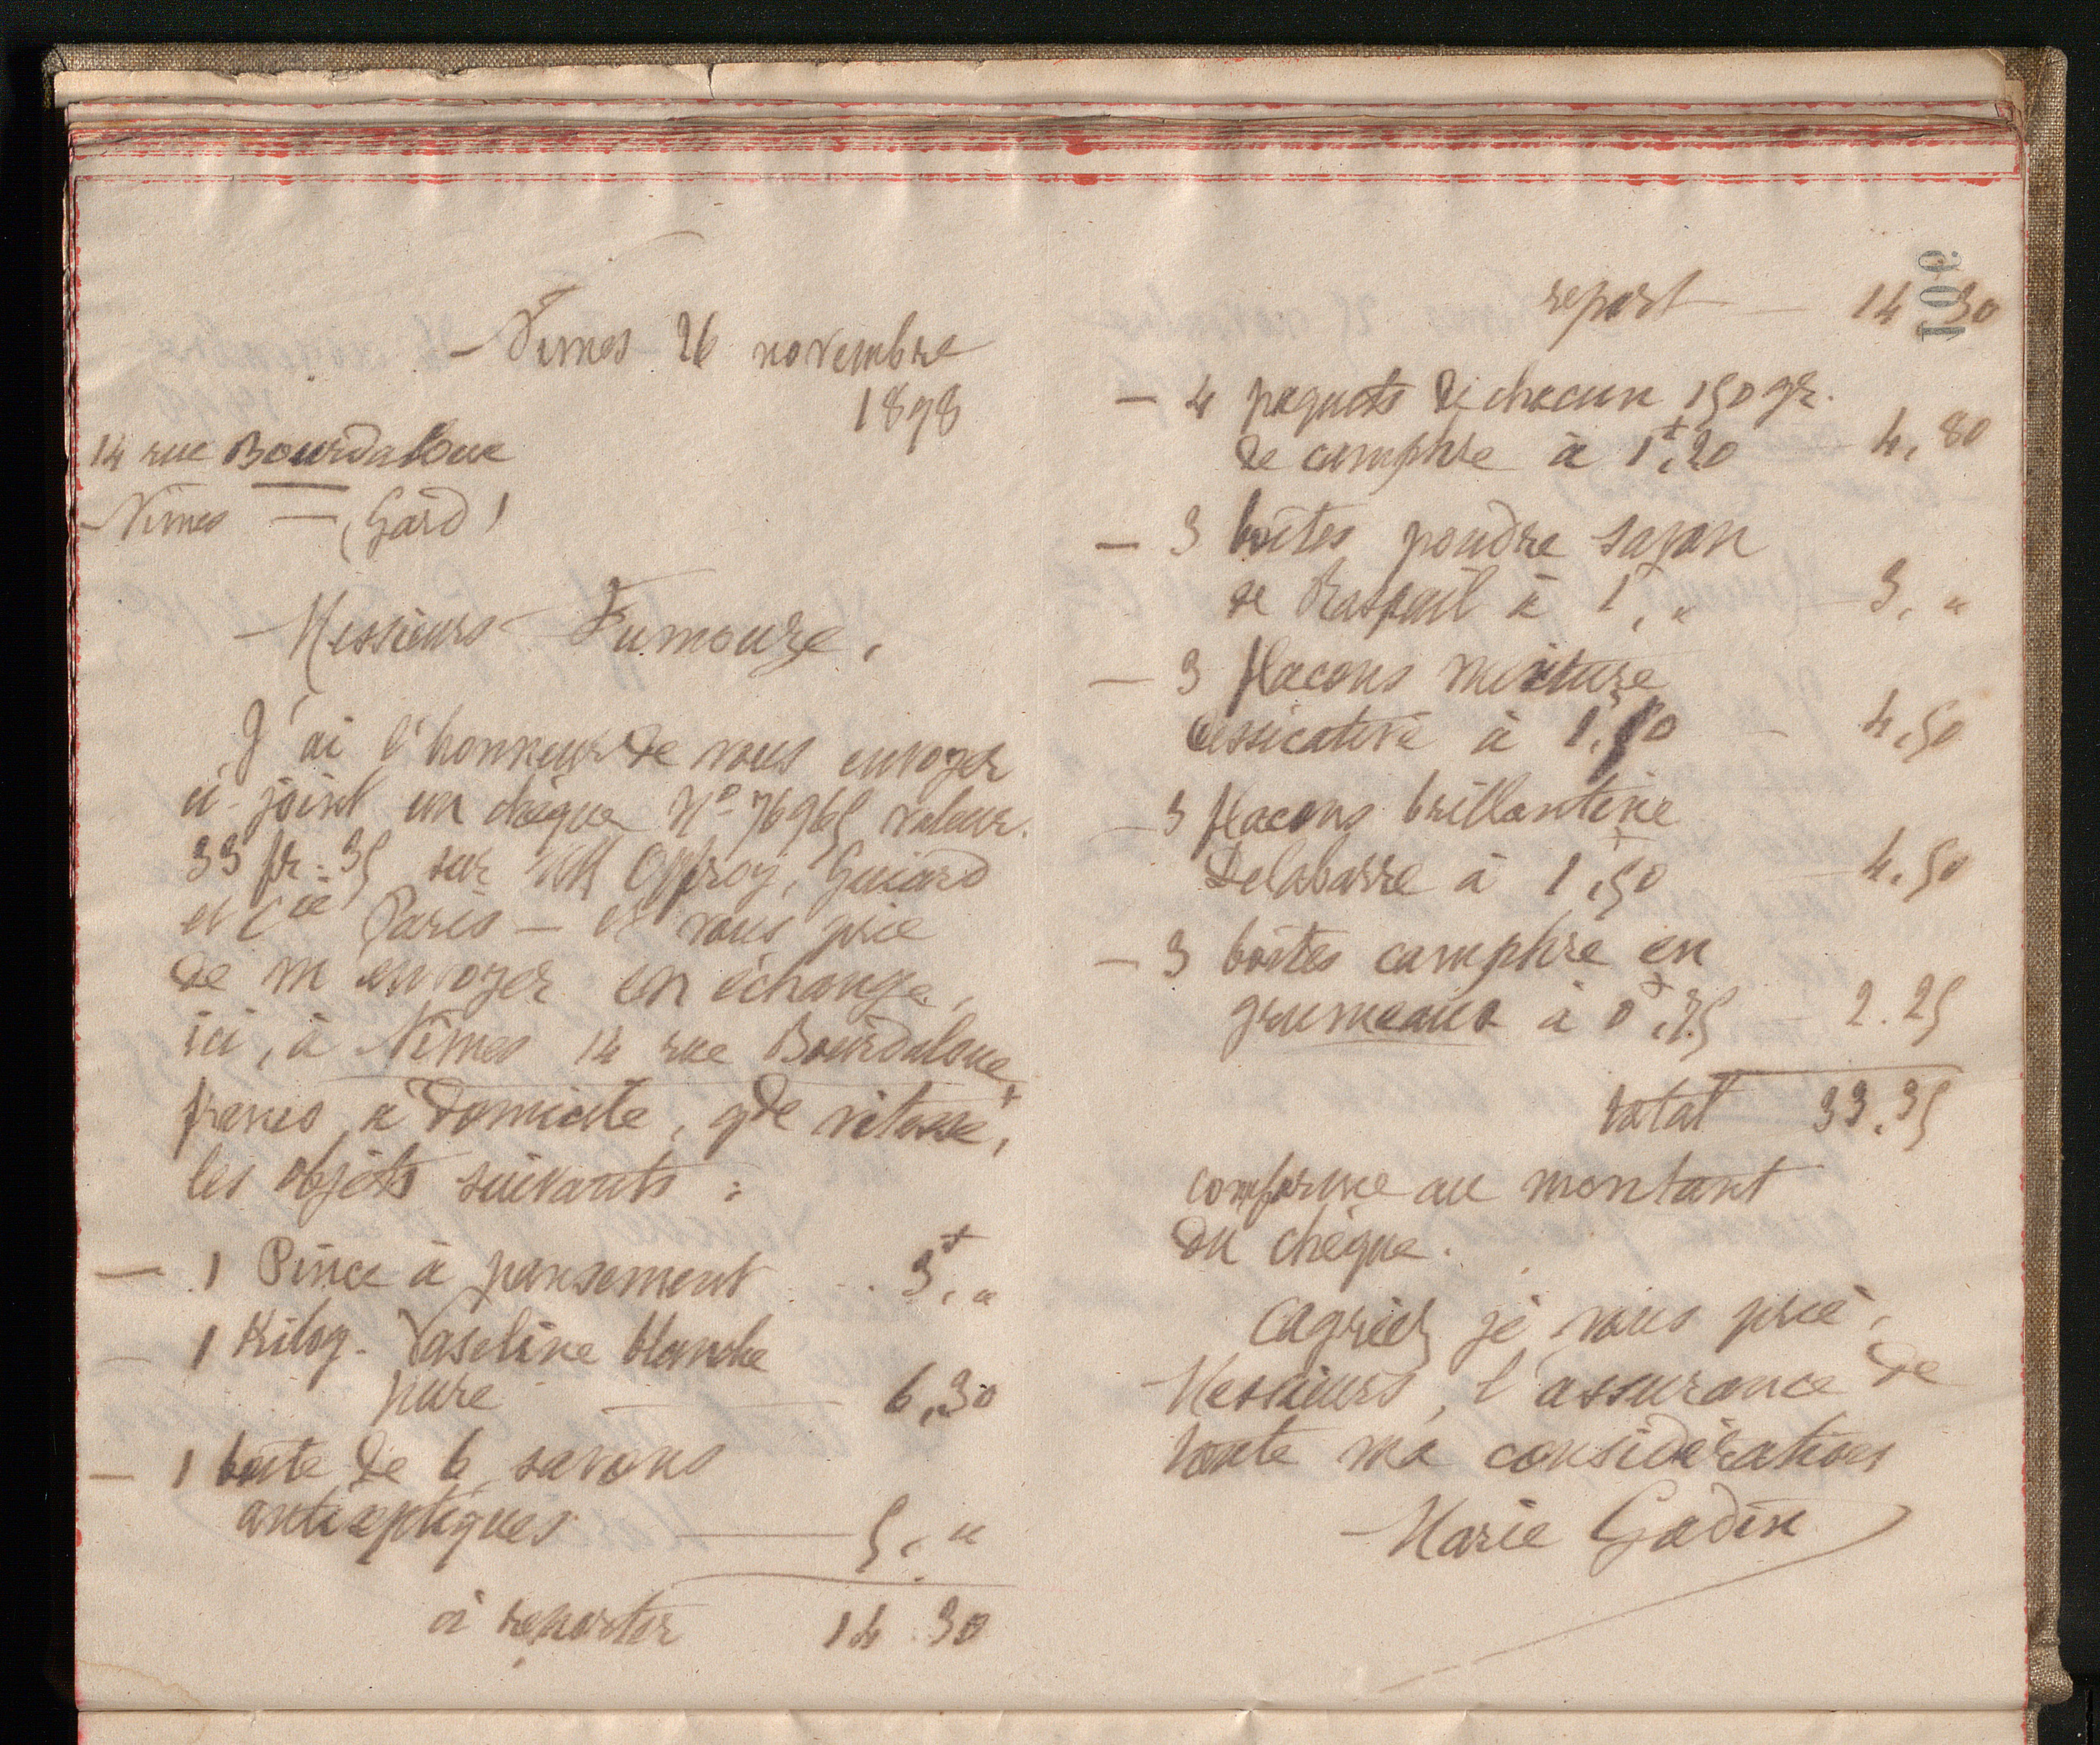 Nîmes 26 novembre
1898
14 rue Bourdaloue
Nîmes — (Gard)
Messieurs Fumouze,
J'ai l'honneur de vous envoyer
ci-joint un chèque N° 76965 valeur
33 fr. 35 sur MM Offroy, Guiard
et Cie Paris — et vous prie
de m'envoyer en échange,
ici, à Nîmes 14 rue Bourdaloue
franco à domicile, gde vitesse,
les objets suivants :
— 1 Pince à pansement .. 3f, "
— 1 Kilog. Vaseline blanche
pure — 6,30
— 1 boîte de 6 savons
antiseptiques — 5, "
à reporter 14.30
100
report — 14,30
— 4 paquets de chacun 150 gr.
de camphre à 1f,20 4,80
— 3 boîtes poudre savon
de Raspail à 1f, " 3, "
— 3 flacons mixture
dessicative à 1f,50 — 4,50
— 3 flacons brillantine
Delabarre à 1f,50 4,50
— 3 boîtes camphre en
grumeaux à 0f,75 — 2.25
total 33.35
conforme au montant
du chèque.
Agréez, je vous prie,
Messieurs, l'assurance de
toute ma considération
Marie Godin